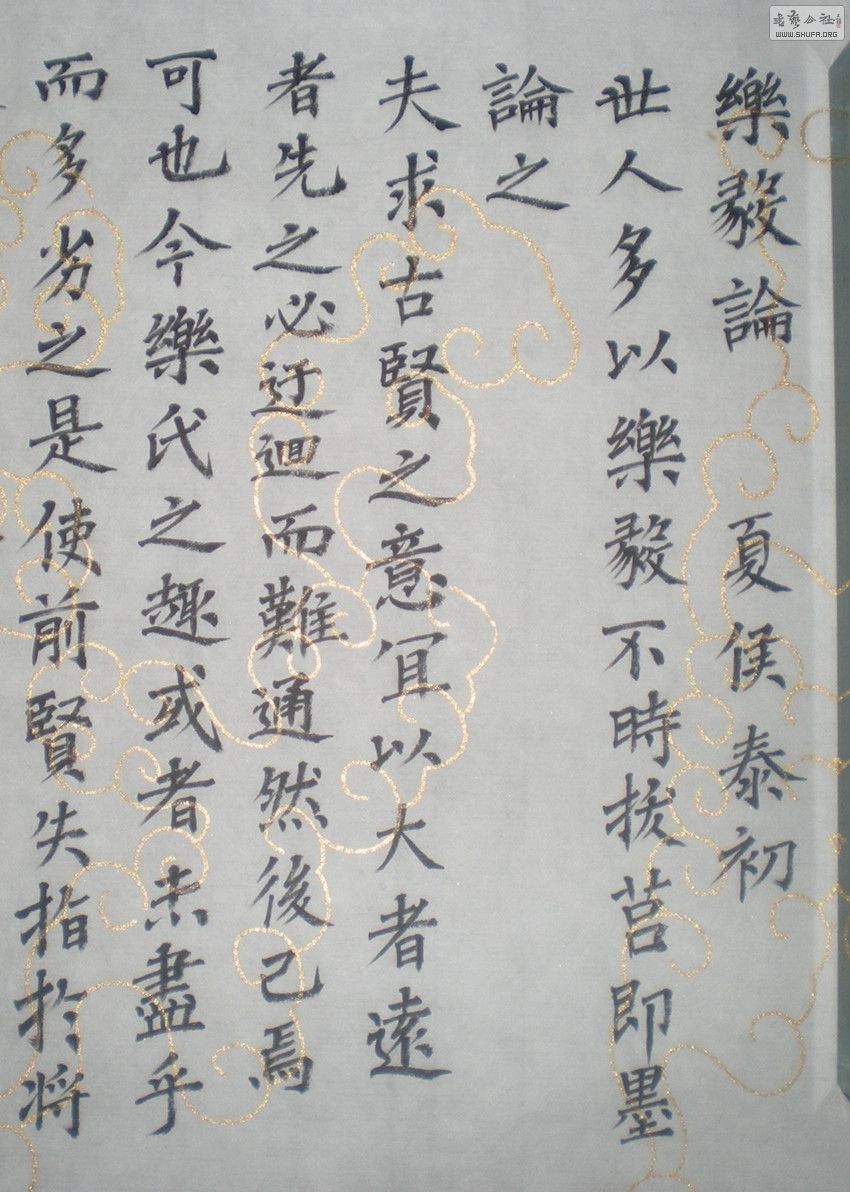 樂毅論 夏侯泰初
世人多以樂毅不時拔莒即墨
論之
夫求古賢之意宜以大者遠
者先之必迂迴而難通然後已焉
可也今樂氏之趣或者未盡乎
而多劣之是使前賢失指於将
WWW.SHUFA.ORG